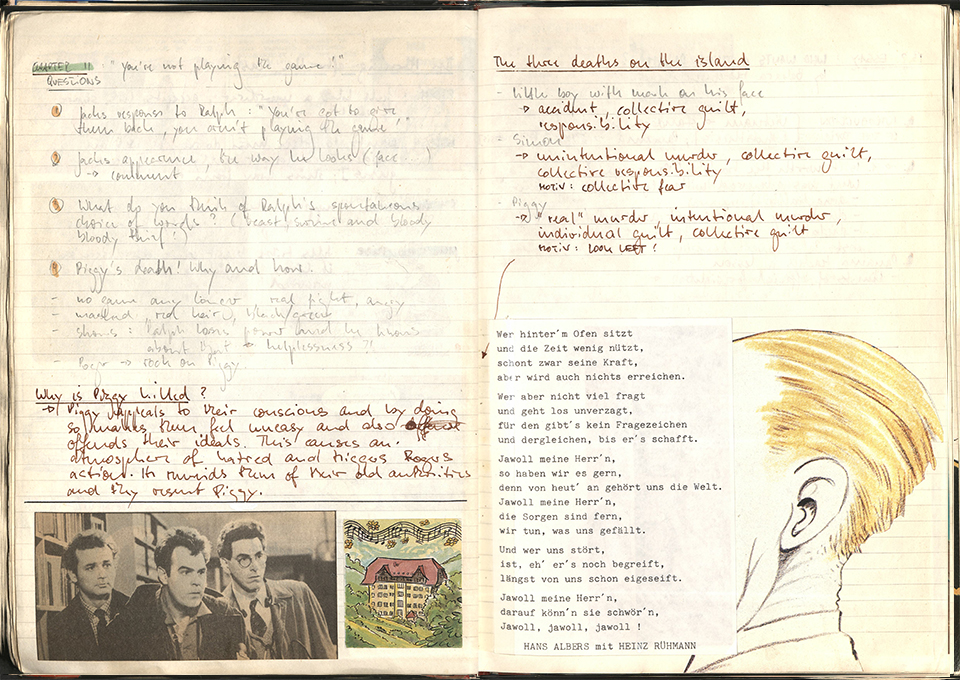 CHAPTER 11 : "You're not playing the game!"
QUESTIONS
1 Jacks response to Ralph : "You've got to give
them back, you ain't playing the game,"
2 Jack's appearance, the way he looks (face ....)
→ comment
3 What do you think of Ralph's spontaneous
choice of words? (beast, swine and bloody
bloody thief!)
4 Piggy's death! Why and how?
- no game any longer, real fight, angry
- masked, red hair, black/green
- shows : Ralph loses power and he knows
about that → helplessness?!
- Roger → rock on Piggy
Why is Piggy killed ?
→ Piggy appeals to their conscious and by doing
so makes them feel uneasy and also
offends their ideals. This causes an
atmosphere of hatred and triggers Rogers
action. It reminds them of their old authorities
and they resent Piggy.
The three deaths on the island
- little boy with mark on his face
→ accident, collective guilt,
responsibility
- Simon
→ unintentional murder, collective guilt,
collective responsibility
MOTIV : collective fear
- Piggy
→ "real" murder, intentional murder,
individual guilt, collective guilt
MOTIV : !
Wer hinter'm Ofen sitzt
und die Zeit wenig nützt,
schont zwar seine Kraft,
aber wird auch nichts erreichen.
Wer aber nicht viel fragt
und geht los unverzagt,
für den gibt's kein Fragezeichen
und dergleichen, bis er's schafft.
Jawoll meine Herr'n,
so haben wir es gern,
denn von heut' an gehört uns die Welt.
Jawoll meine Herr'n,
die Sorgen sind fern,
wir tun, was uns gefällt.
Und wer uns stört,
ist, eh' er's noch begreift,
längst von uns schon eigeseift.
Jawoll meine Herr'n,
darauf könn'n sie schwör'n,
Jawoll, jawoll, jawoll !
HANS ALBERS mit HEINZ RÜHMANN